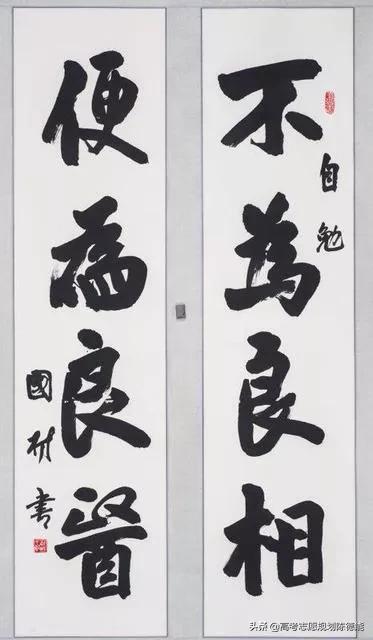 不為良相
自勉
便為良醫
國材書
头条@高考志愿规划陈德能